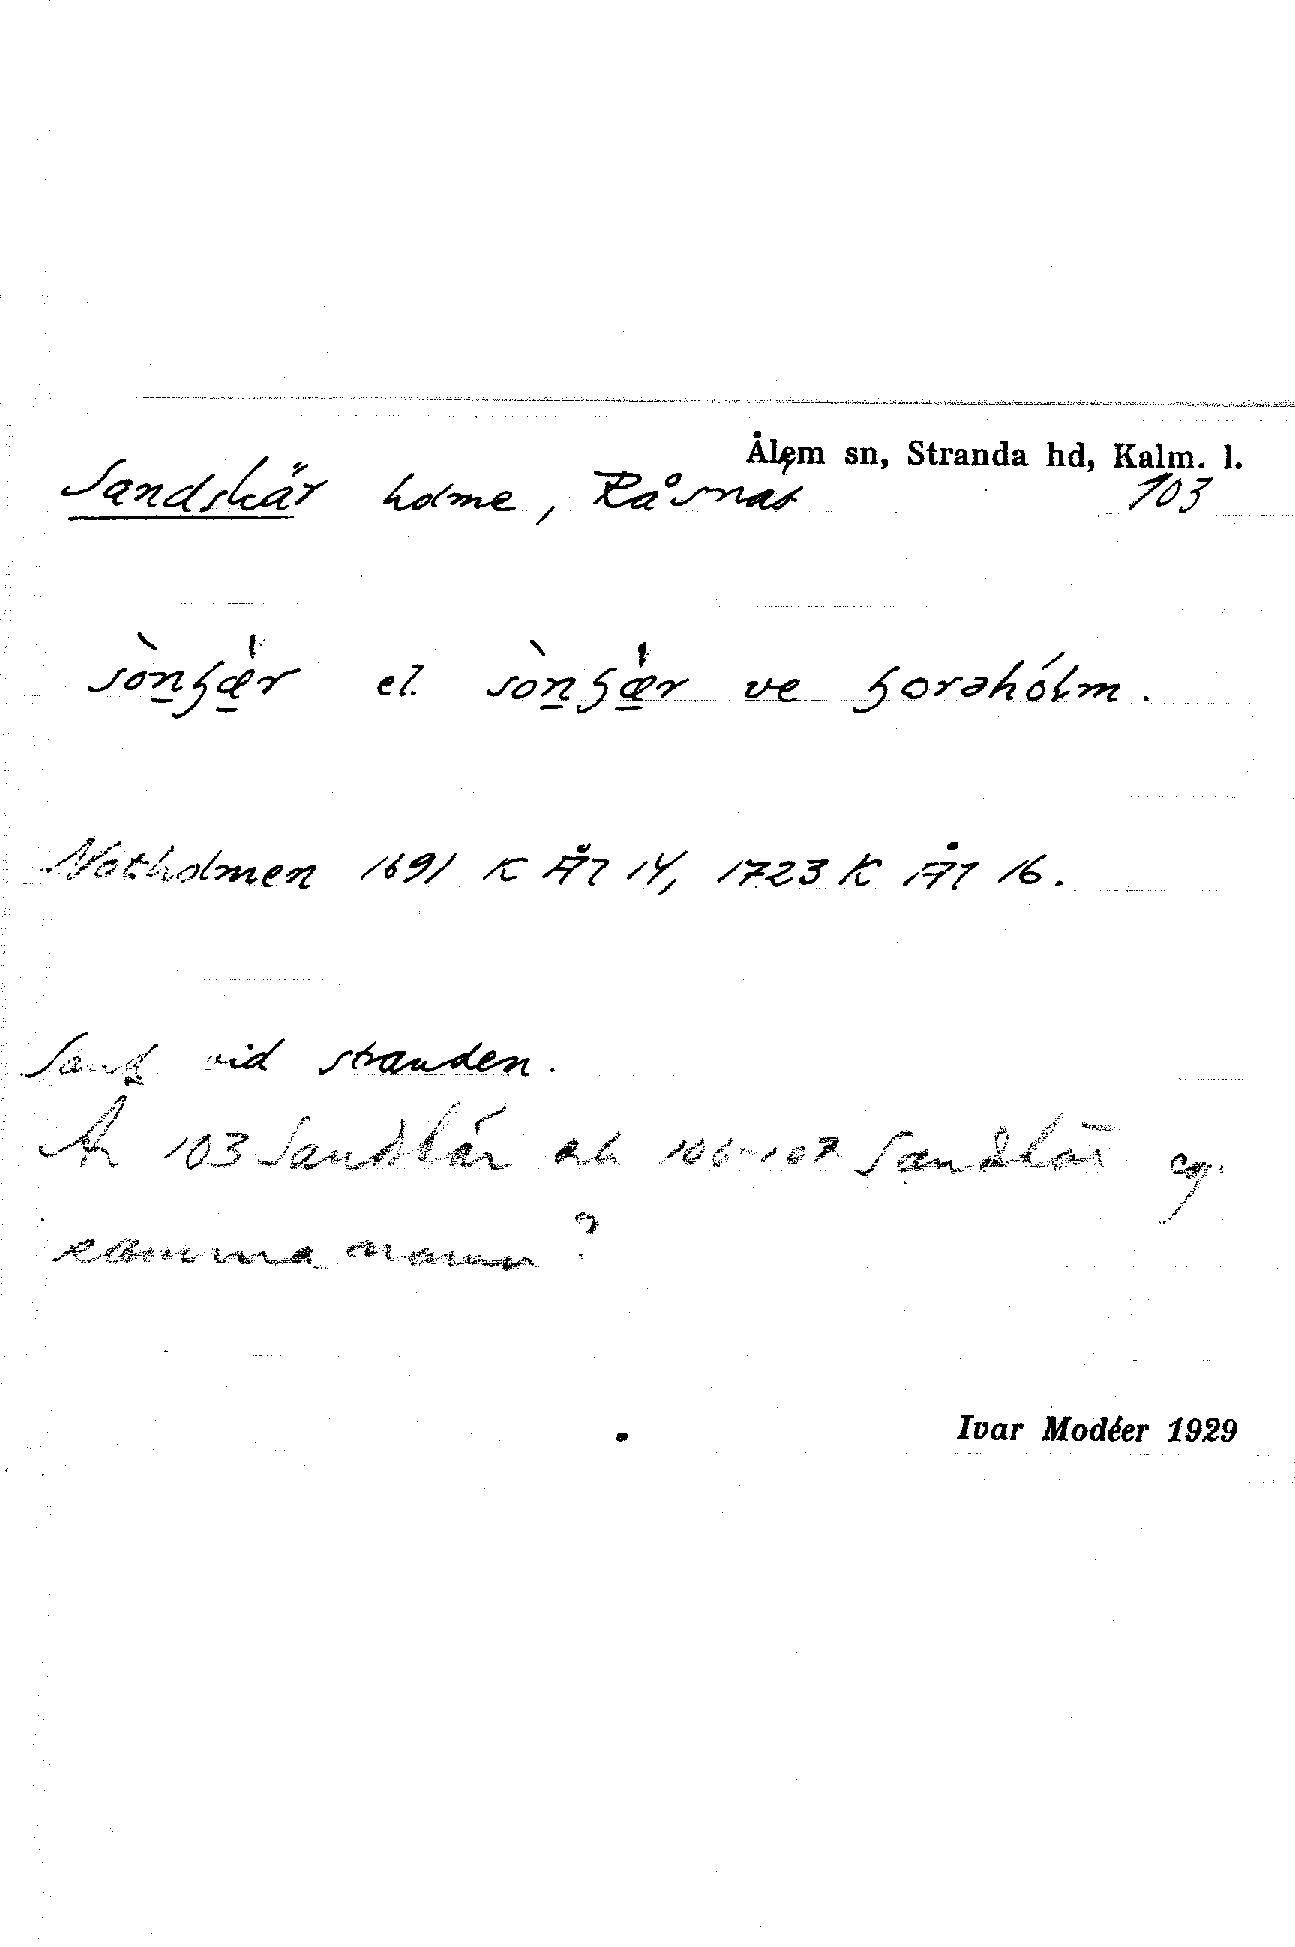 Ålem sn, Stranda hd, Kalm. l.
Sandskär holme, Råsnäs 103
sònʂæ̀r el. sònʂæ̀r ve ʂorəhólm.
Notholmen 1691 K Ål 14, 1723 K Ål 16.
Sand vid stranden.
Är 103 Sandskär och 106-107 Sandskär eg.
samma namn?
Ivar Modéer 1929